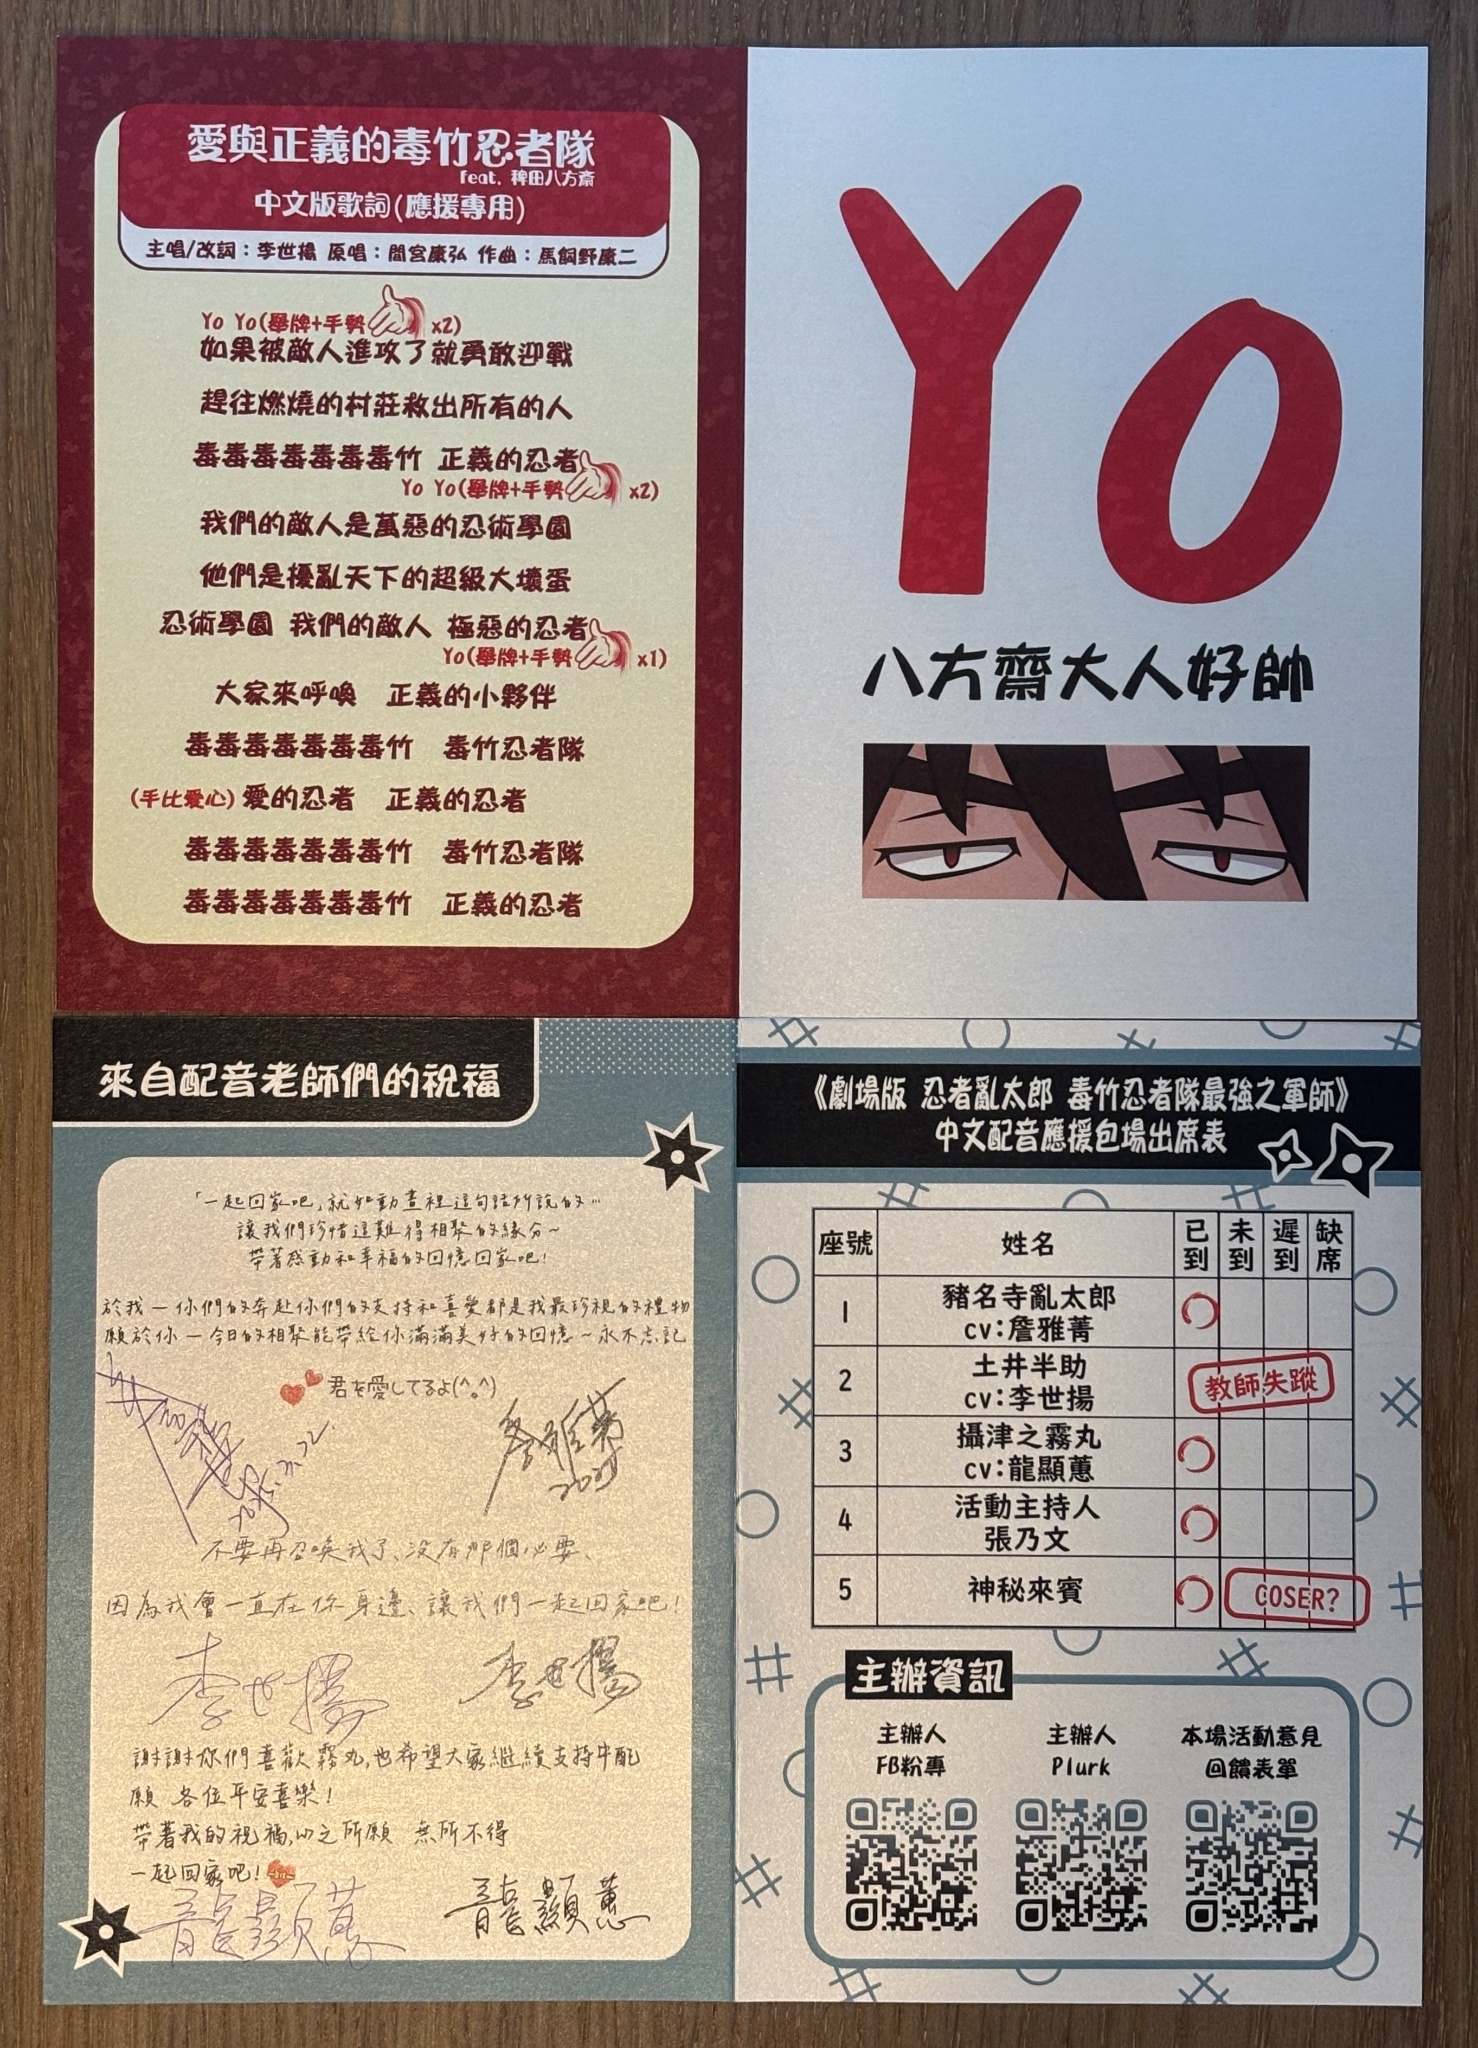 愛與正義的毒竹忍者隊
feat. 稗田八方齋
中文版歌詞(應援專用)
主唱/改詞：李世揚 原唱：間宮康弘 作曲：馬飼野康二
Yo Yo(舉牌+手勢 x2)
如果被敵人進攻了就勇敢迎戰
趕往燃燒的村莊救出所有的人
毒毒毒毒毒毒毒竹 正義的忍者
Yo Yo(舉牌+手勢 x2)
我們的敵人是萬惡的忍術學園
他們是擾亂天下的超級大壞蛋
忍術學園 我們的敵人 極惡的忍者
Yo(舉牌+手勢 x1)
大家來呼喚 正義的小夥伴
毒毒毒毒毒毒毒竹 毒竹忍者隊
(手比愛心) 愛的忍者 正義的忍者
毒毒毒毒毒毒毒竹 毒竹忍者隊
毒毒毒毒毒毒毒竹 正義的忍者
Yo
八方齋大人好帥
來自配音老師們的祝福
「一起回家吧」就如動畫裡這句話所說的…
讓我們珍惜這難得相聚的緣分~
帶著感動和幸福的回憶回家吧!
於我—你們的奔赴你們的支持和喜愛都是我最珍視的禮物
願於你—今日的相聚能帶給你滿滿美好的回憶~永不忘記
君を愛してるよ(^。^)
詹雅菁
2025
不要再召喚我了、沒有那個必要、
因為我會一直在你身邊、讓我們一起回家吧!
李世揚
李世揚
謝謝你們喜歡霧丸,也希望大家繼續支持中配
願 各位平安喜樂!
帶著我的祝福,心之所願 無所不得
一起回家吧!
龍顯蕙
龍顯蕙
《劇場版 忍者亂太郎 毒竹忍者隊最強之軍師》
中文配音應援包場出席表
座號 姓名 已到 未到 遲到 缺席
1 豬名寺亂太郎
cv:詹雅菁
2 土井半助
cv:李世揚
教師失蹤
3 攝津之霧丸
cv:龍顯蕙
4 活動主持人
張乃文
5 神秘來賓
COSER?
主辦資訊
主辦人
FB粉專
主辦人
Plurk
本場活動意見
回饋表單